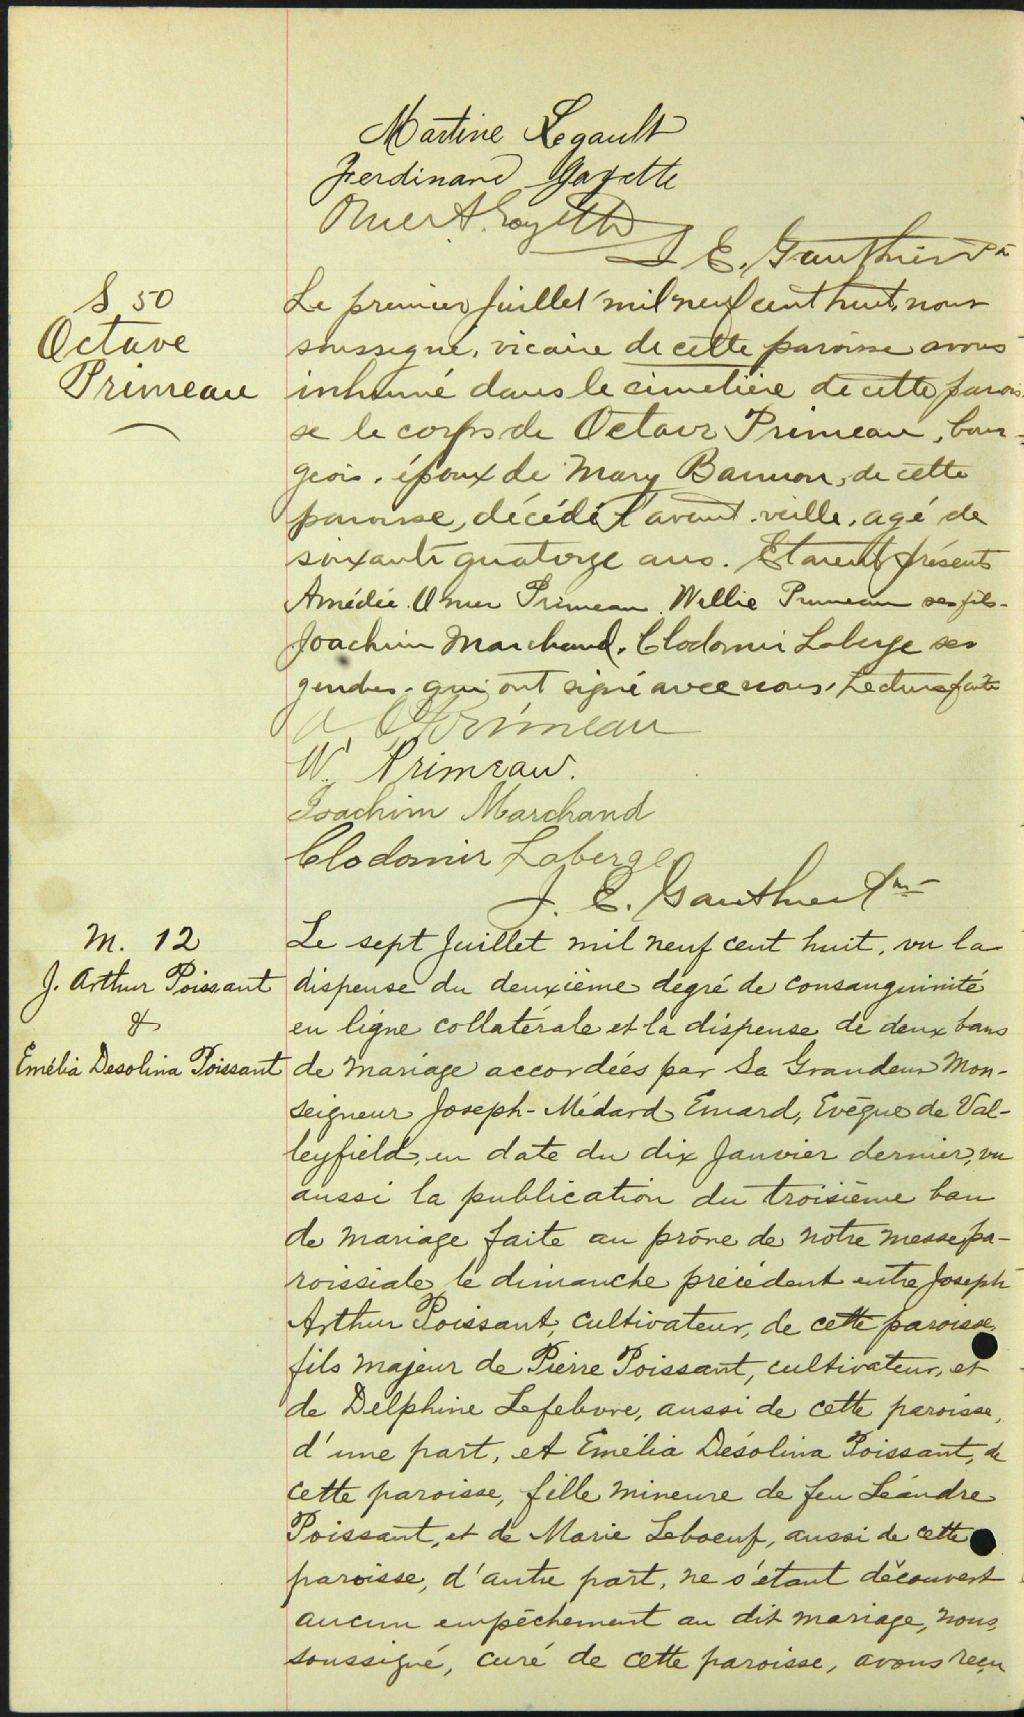 Martine Legault
Ferdinand Goyette
Omer A. Goyette
J E. Gauthier Ptre
S 50
Octave
Primeau
Le premier Juillet mil neuf cent huit, nous
soussigné, vicaire de cette paroisse avons
inhumé dans le cimetière de cette parois
se le corps de Octave Primeau, bour-
geois, époux de Mary Bannon, de cette
paroisse, décédé l'avant-veille, agé de
soixante quatorze ans. Etaient présents
Amédée Omer Primeau, Willie Primeau ses fils-
Joachim Marchand, Clodomir Laberge ses
gendres, qui ont signé avec nous, Lecture faite
A O Primeau
W. Primeau.
Joachim Marchand
Clodomir Laberge
J. E. Gauthier Ptre
M. 12
J. Arthur Poissant
&
Emélia Desolina Poissant
Le sept Juillet mil neuf cent huit, vu la
dispense du deuxième degré de consanguinité
en ligne collatérale et la dispense de deux bans
de mariage accordées par Sa Grandeur Mon-
seigneur Joseph-Médard Emard, Evêque de Val-
leyfield, en date du dix Janvier dernier, vu
aussi la publication du troisième ban
de mariage faite au prône de notre messe pa-
roissiale le dimanche précédent entre Joseph
Arthur Poissant, cultivateur, de cette paroisse,
fils majeur de Pierre Poissant, cultivateur, et
de Delphine Lefebvre, aussi de cette paroisse,
d'une part, et Emélia Désolina Poissant, de
cette paroisse, fille mineure de feu Léandre
Poissant, et de Marie Leboeuf, aussi de cette
paroisse, d'autre part, ne s'étant découvert
aucun empêchement au dit mariage, nous,
soussigné, curé de cette paroisse, avons reçu